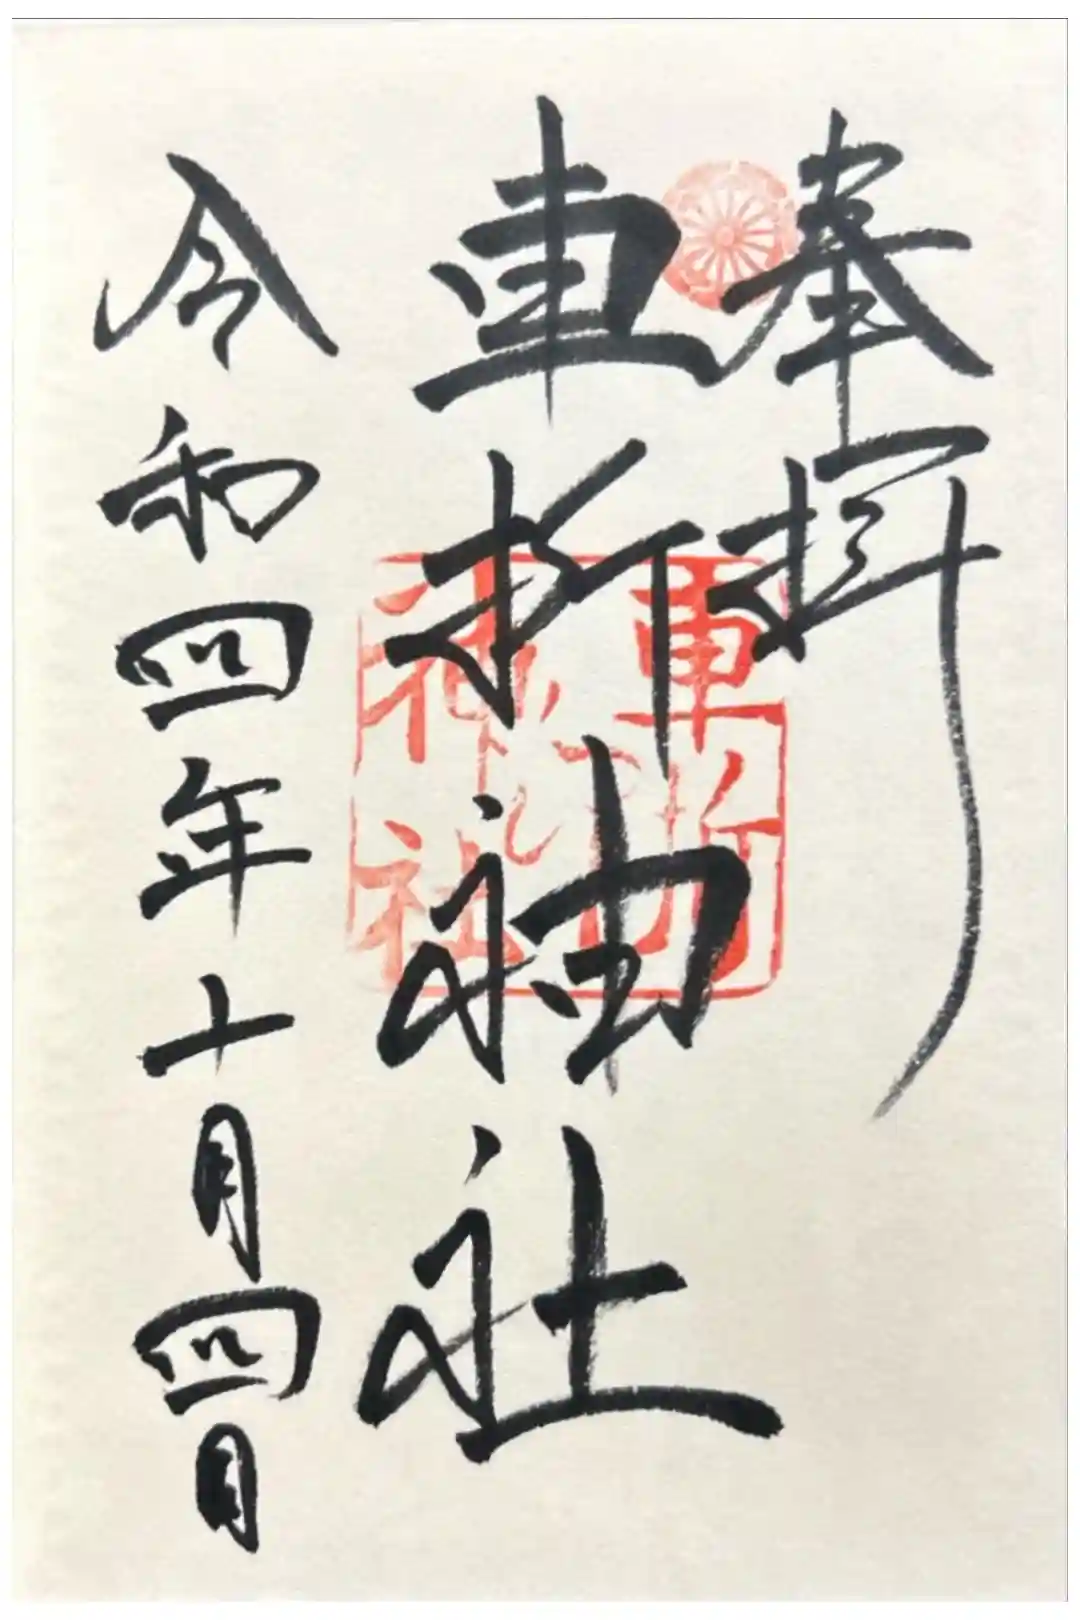 奉拝
車折神社
令和四年十月四日
車折
神社